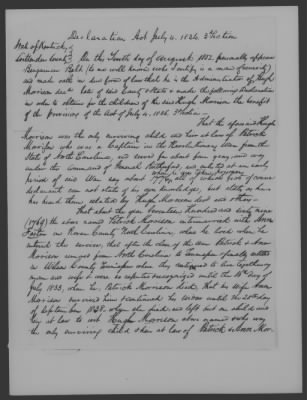 Declaration Act July 4. 1836, 3d Section
State of Kentucky
County On the Tenth day of August 1852. personally appeared
Benjamin Bell (to me well known who I certify is a man of veracity)
and made oath in due form of law that he is the Administrator of Hugh
Morrison late of said County & State & made the following Declaration
in order to obtain for the children of the said Hugh Morrison the benefit
of the Provisions of the Act of July 4. 1836. 3d Section.
That the aforesaid Hugh
Morrison was the only surviving child and heir at law of Patrick
Morrison who was a Captain in the Revolutionary War from the
State of North Carolina, and served for about four years, and was
under the command of General Rutherford, and enlisted at an early
period of said War say about all of which facts of course
declarant can not state of his own knowledge, but states as he
has heard them related by Hugh Morrison decd and others
That about the year Seventeen Hundred and sixty nine
(1769) the above named Patrick Morrison intermarried with
in Rowan County North Carolina, where he lived when he
entered the service, that after the close of the War Patrick & Ann
Morrison moved from North Carolina to Tennessee & finally settled
in Wilson County Tennessee where they continued to live together as
man and wife & were so reputed & recognized until the day of
July 1833, when her Patrick Morrison died, that his wife Ann
Morrison survived him & continued his widow until the 20th day
of September 1838. when she died and left but one child and
heir at law to wit Hugh Morrison above named who was
the only surviving child & heir at law of Patrick & Ann Mor-